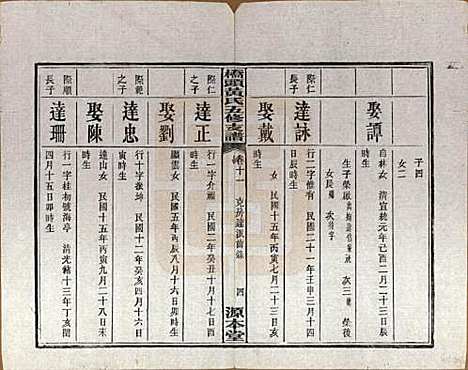 子四
女二
娶譚
自林女 清宣統元年己酉二月二十三日
時生
生子榮
際仁長子
達詠
行一字惟有 民國二十一年壬申三月十四
日辰時生
娶戴
女 民國十五年丙寅七月二十三日
時生
橋頭黃氏五修支譜
卷十一
四
源本堂
際仁之子
達正
行一字 民國二年癸丑十月十七日酉
時生
娶劉
女 民國五年丙辰八月十六日
時生
際乾之子
達忠
行十字振坤 民國十二年癸亥四月十六日
寅時生
娶陳
達山女 民國十五年丙寅九月二十八日未
時生
際順長子
達珊
行一字桂初號海亭 清光緒十三年丁亥閏
四月十五日卯時生